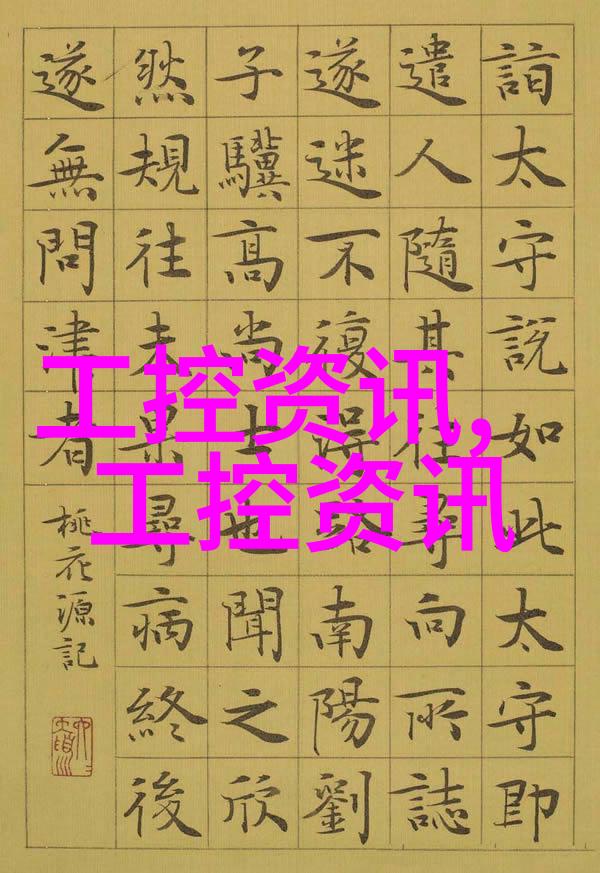 詣太守説如此太守即
遣人隨其往尋向所誌
遂迷不復得路南陽劉
子驥高尚士也聞之欣
然規往未果尋病終後
遂無問津者
桃花源記
工控资讯,
工控资讯